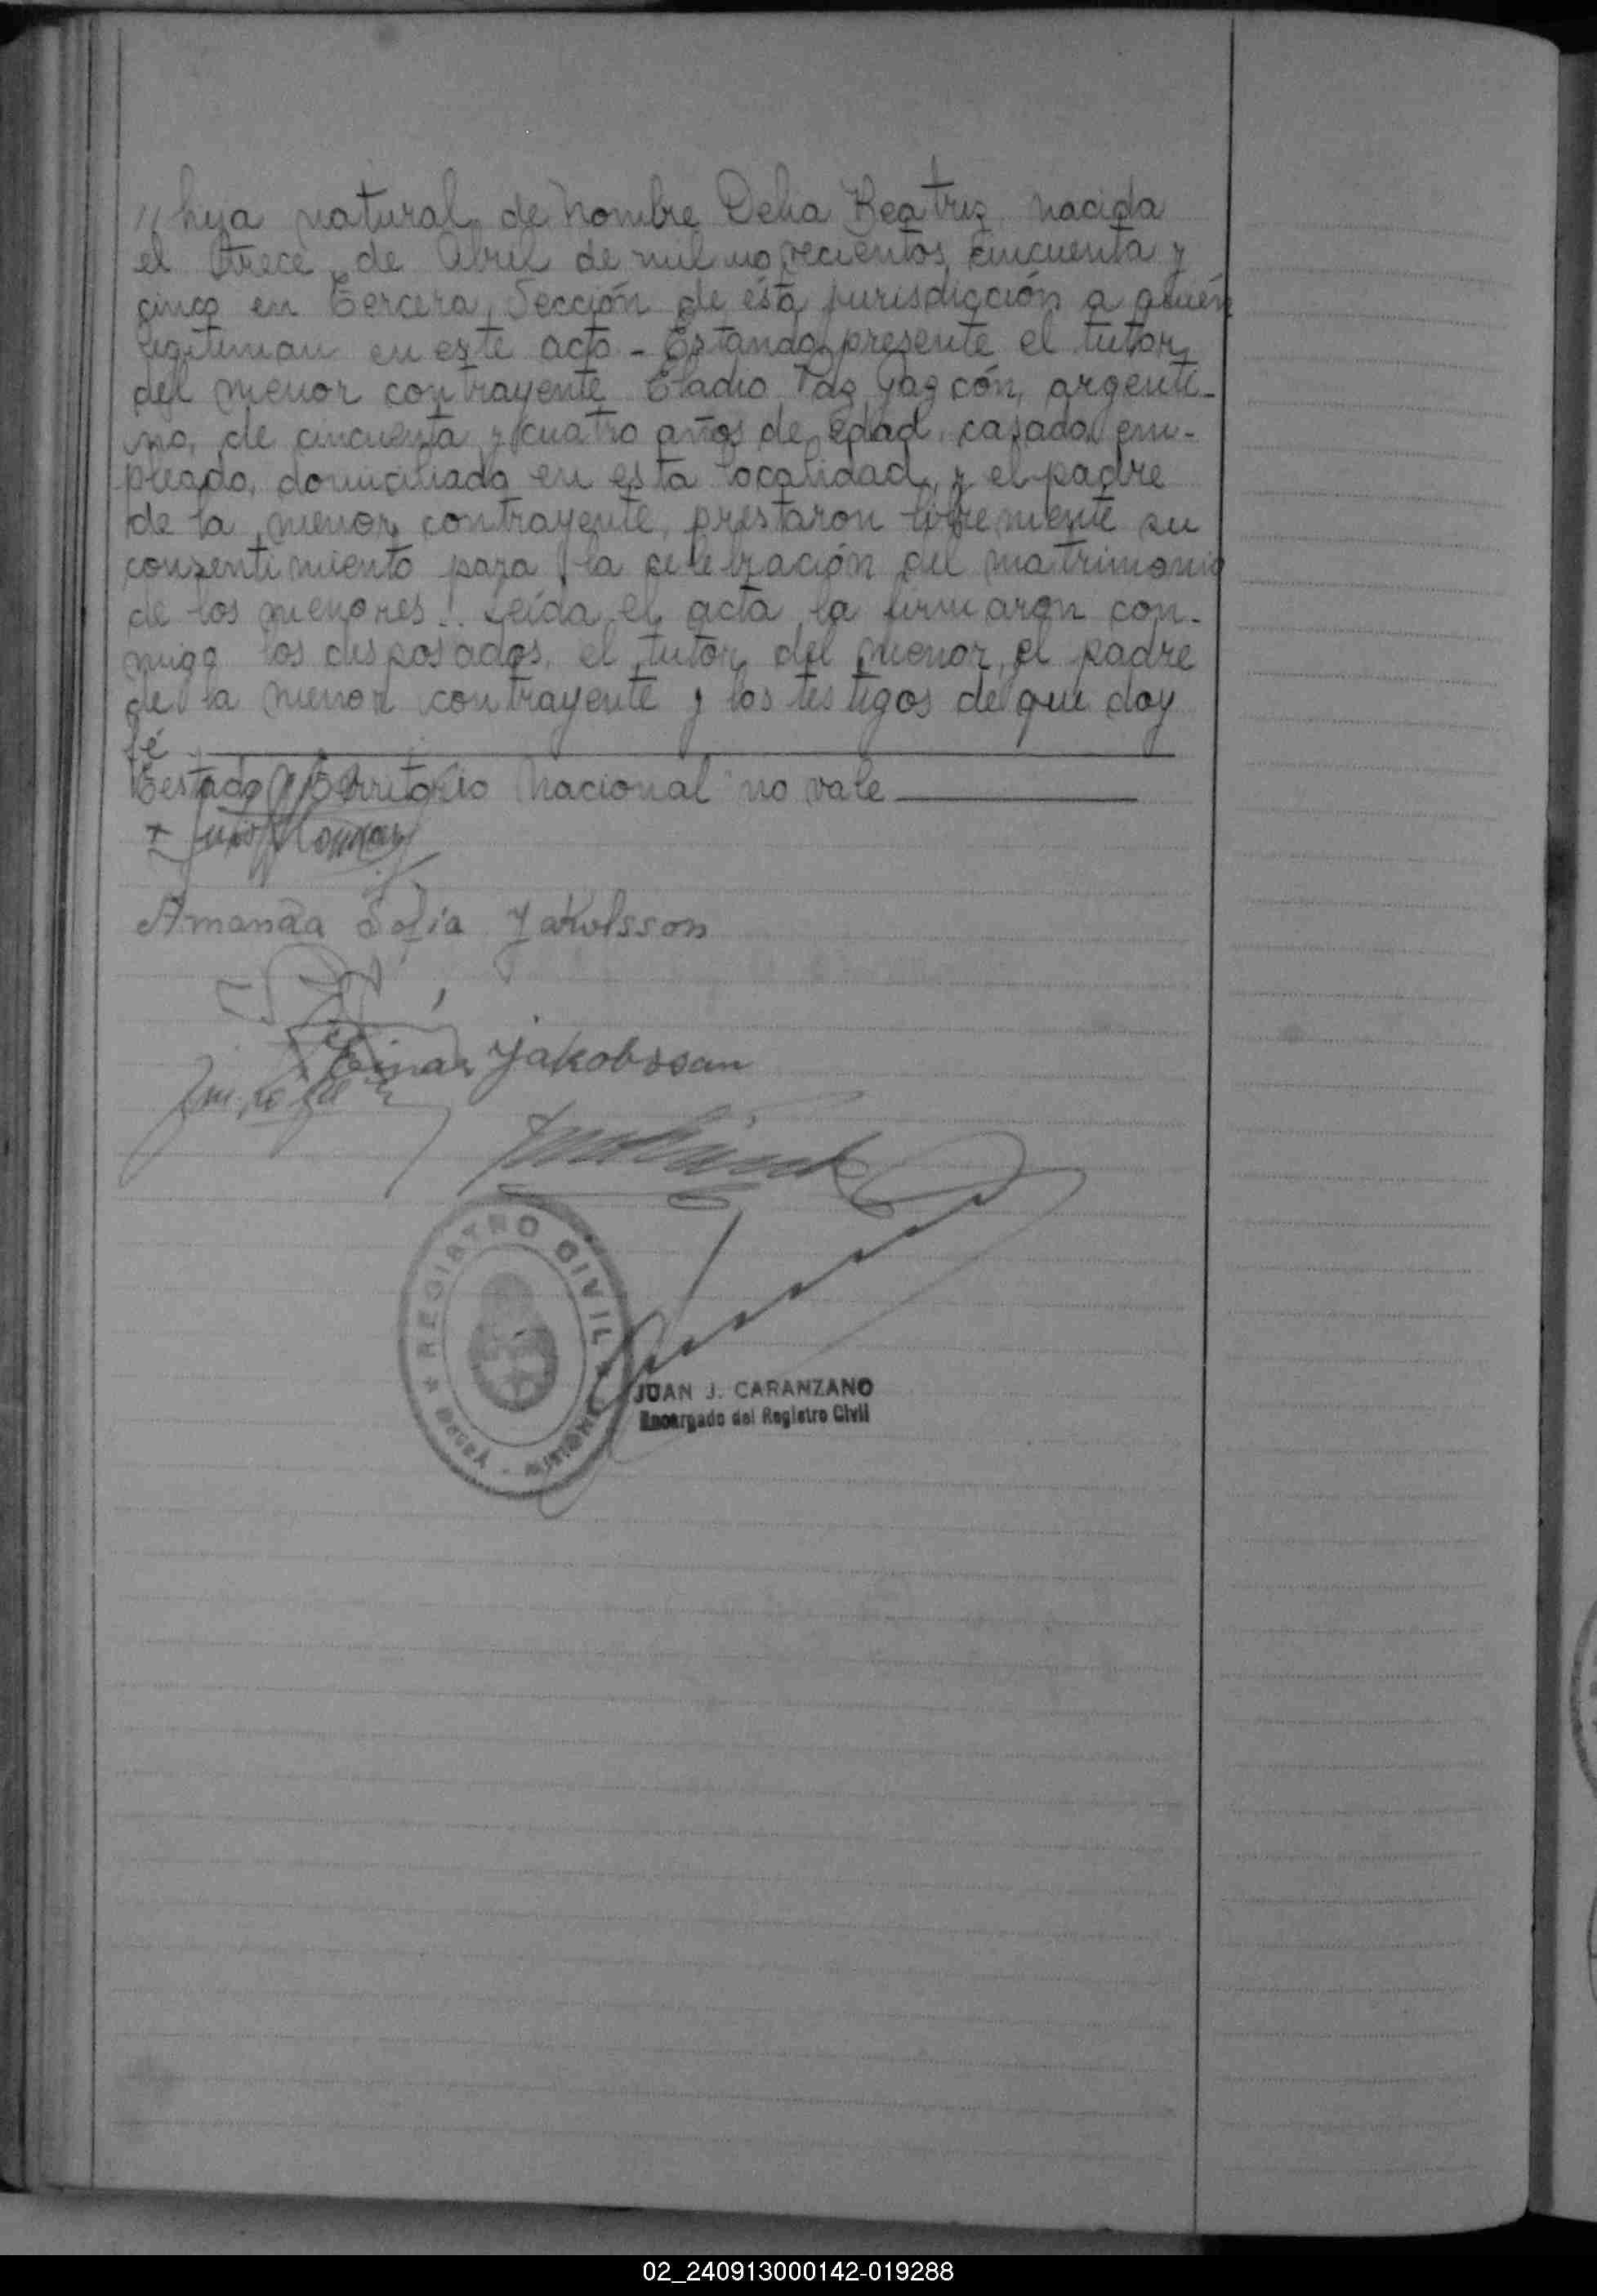 // hija natural de nombre Delia Beatriz, nacida
el trece de Abril de mil novecientos cincuenta y
cinco en Tercera Sección de ésta jurisdicción a quién
legitiman en este acto - Estando presente el tutor
del menor contrayente Eladio Paz, argenti-
no, de cincuenta y cuatro años de edad, casado, em-
pleado, domiciliado en esta localidad, y el padre
de la menor contrayente, prestaron libremente su
consentimiento para la celebración del matrimonio
de los menores. Leída el acta la firmaron con-
migo los desposados, el tutor del menor, el padre
de la menor contrayente y los testigos de que doy
fé
Testado Territorio Nacional no vale
Amanda Sofia Jakobsson
Einar Jakobsson
REGISTRO CIVIL
JUAN J. CARANZANO
Encargado del Registro Civil
02_240913000142-019288